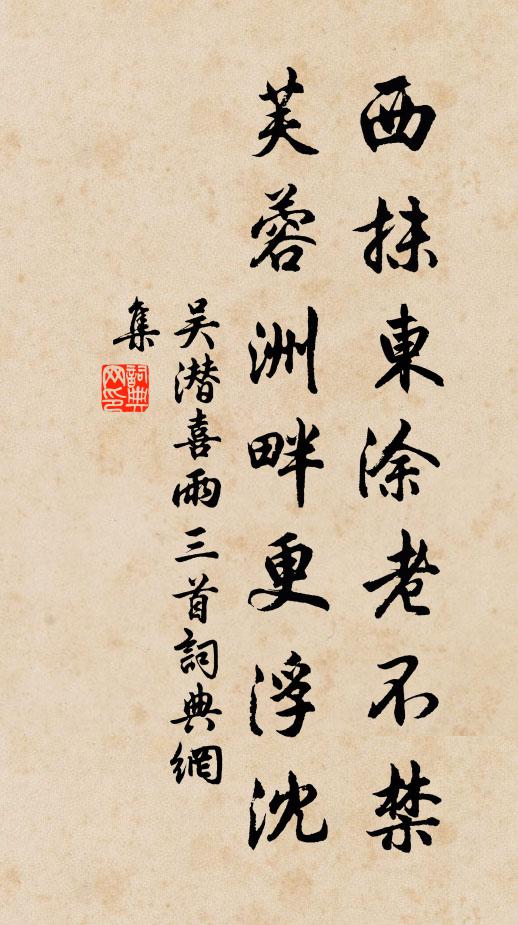 西抹東涂老不禁
芙蓉洲畔更浮沈
吴潜喜雨三首詞典網
集
詞典
网印